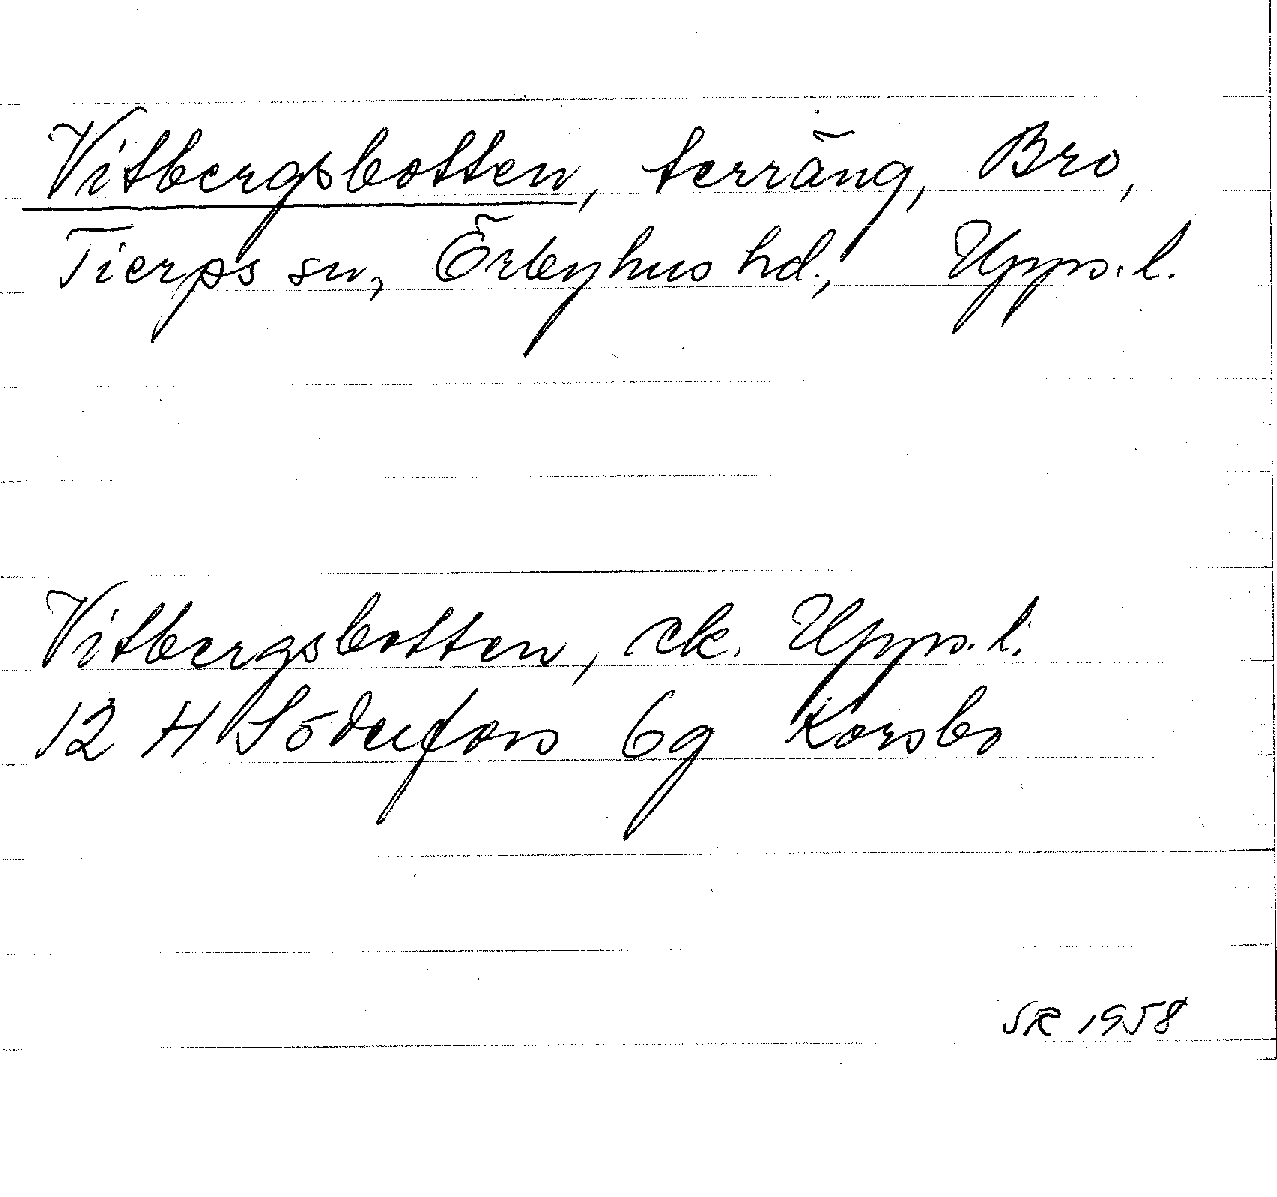 Vitbergsbotten, terräng, Bro,
Tierps sn, Örbyhus hd., Upps. l.
Vitbergsbotten, ek. Upps. l.
12 H Söderfors 6g Korsbo
SR 1958